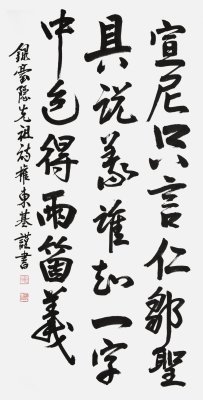 宣尼只言仁鄒聖
具說義誰知一字
中包得兩箇義
銀臺隱先祖詩 權東基謹書